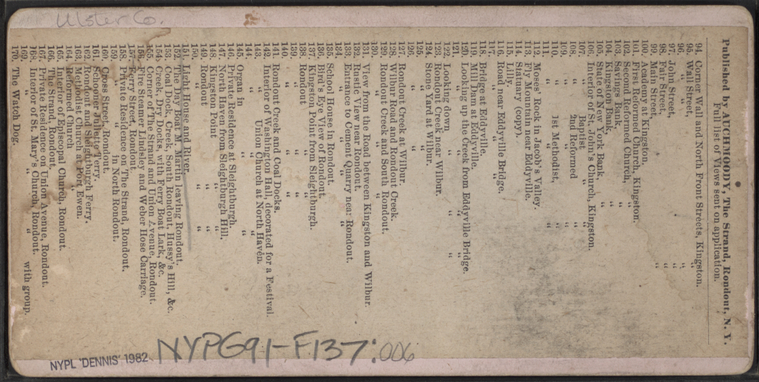 Ulster Co.
Published by AUCHMOODY, The Strand, Rondout, N. Y.
Full list of Views sent on application.
94. Corner Wall and North Front Streets, Kingston.
95. Wall Street, "
96. " " "
97. John Street, "
98. Fair Street, "
99. Main Street, "
100. Academy at Kingston.
101. First Reformed Church, Kingston.
102. Second Reformed Church, "
103. " " "
104. Kingston Bank, "
105. State of New York Bank, "
106. Interior of St. John's Church, Kingston.
107. " Baptist " "
108. " 2nd Reformed " "
109. " " " "
110. " 1st Methodist, " "
111. " " "
112. Moses' Rock in Jacob's Valley.
113. Fly Mountain near Eddyville.
114. Statuary (copy).
115. Lilly.
116. Road near Eddyville Bridge.
117. " " "
118. Bridge at Eddyville.
119. Mill Dam at Eddyville.
120. Looking up the Creek from Eddyville Bridge.
121. " " " "
122. Looking down " " "
123. Rondout Creek near Wilbur.
124. Stone Yard at Wilbur.
125. " " "
126. " " "
127. Rondout Creek at Wilbur.
128. Wilbur Road and Rondout Creek.
129. Rondout Creek and South Rondout.
130. " " "
131. View from the Road between Kingston and Wilbur.
132. Rustic View near Rondout.
133. Entrance to Cement Quarry near Rondout.
134. " " "
135. School House in Rondout.
136. Bird's Eye View of Rondout.
137. Kingston Point from Sleightburgh.
138. Rondout " "
139. " " "
140. " " "
141. Rondout Creek and Coal Docks.
142. Interior of Washington Hall, decorated for a Festival.
143. " Union Church at North Haven.
144. " " "
145. Organ in " "
146. Private Residence at Sleightburgh.
147. North Haven from Sleightburgh Hill.
148. Kingston Point "
149. Rondout " "
150. " " "
151. Light House and River.
152. The Day Boat Martin leaving Rondout.
153. Coal Dock, Creek, South Rondout, Hussy's Hill, &c.
154. Creek, Dry Docks, with Ferry Boat Lark, &c.
155. Corner of The Strand and Union Avenue, Rondout.
156. Fire Steamer Lackawanna and Weber Hose Carriage.
157. Ferry Street, Rondout.
158. Private Residence on The Strand, Rondout.
159. " in New Rondout.
160. Cross Street, Rondout.
161. Schooner
162. Rondout and Sleightburgh Ferry.
163. Methodist Church at Port Ewen.
164. Reformed Church "
165. Interior of Episcopal Church, Rondout.
166. The Strand, Rondout.
167. Private Residences on Union Avenue, Rondout.
168. Interior of St. Mary's Church, Rondout.
169. " " " with group.
170. The Watch Dog.
NYPL 'DENNIS' 1982
NYPG91-F137:006